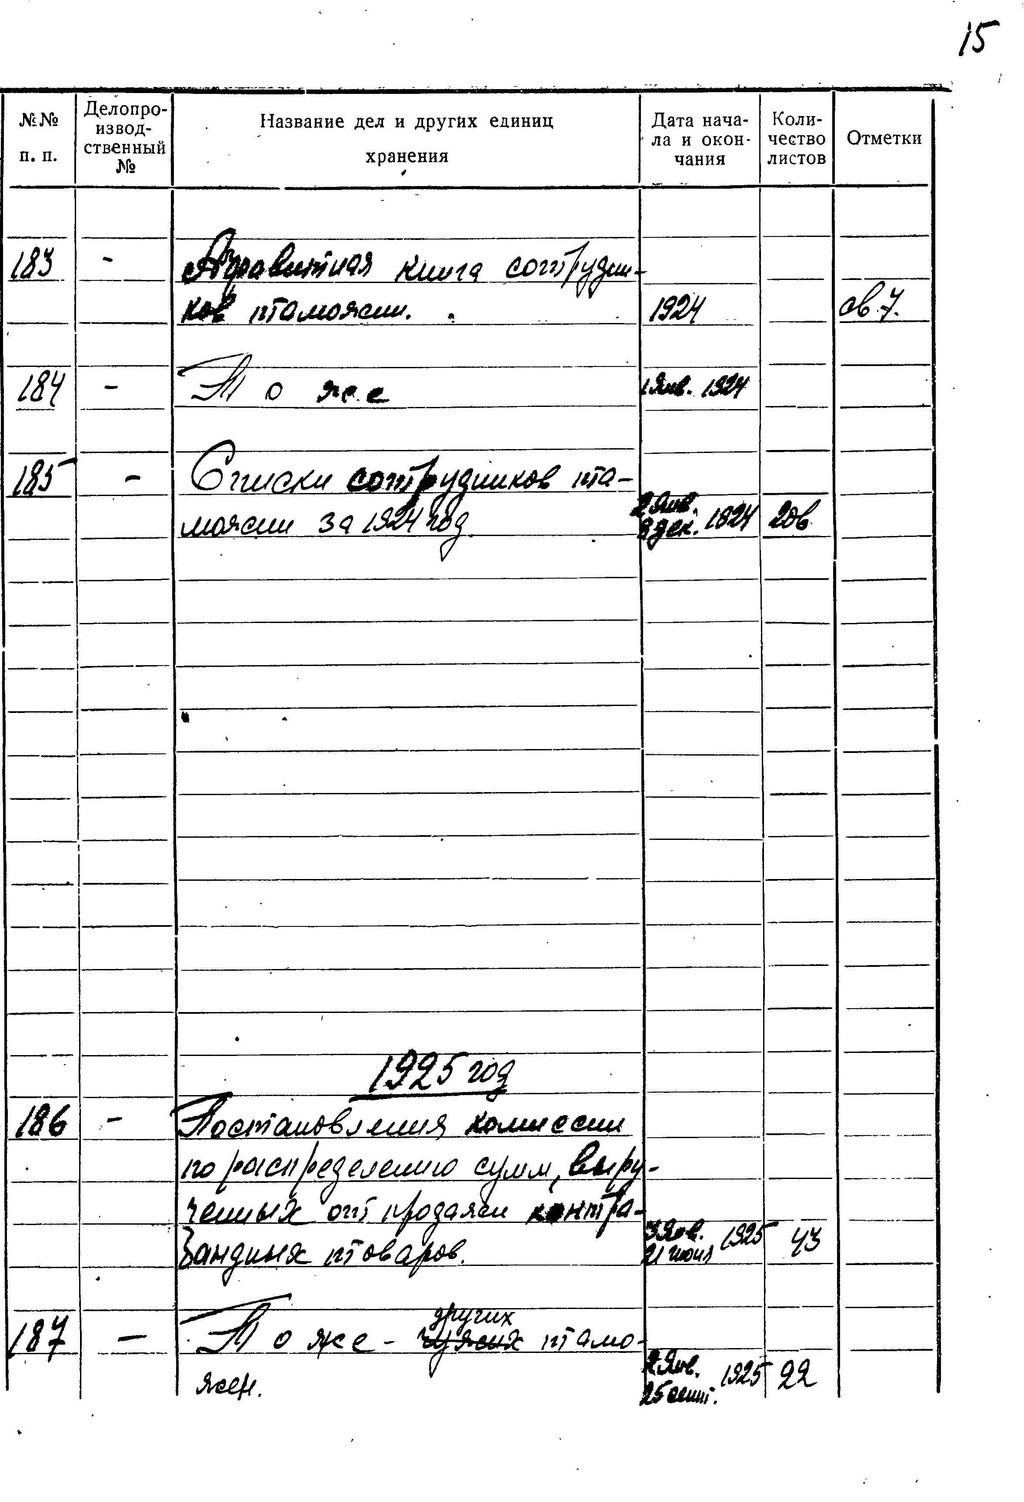 15
№№ п. п.
Делопро-
извод-
ственный
№
Название дел и других единиц
хранения
Дата нача-
ла и окон-
чания
Коли-
чество
листов
Отметки
183 - Алфавитная книга сотрудни-
ков таможни. 1924 св 7.
184 - То же 1 Янв. 1924
185 - Списки сотрудников та-
можни за 1924 год. 2 Янв. 8 дек. 1924 206
1925 год
186 - Постановления комиссии
по распределению сумм, выру-
ченных от продажи контра-
бандных товаров. 3 Янв. 21 июня 1925 43
других
187 - То же - чужих тамо-
жен. 2 Янв. 25 сент. 1925 22